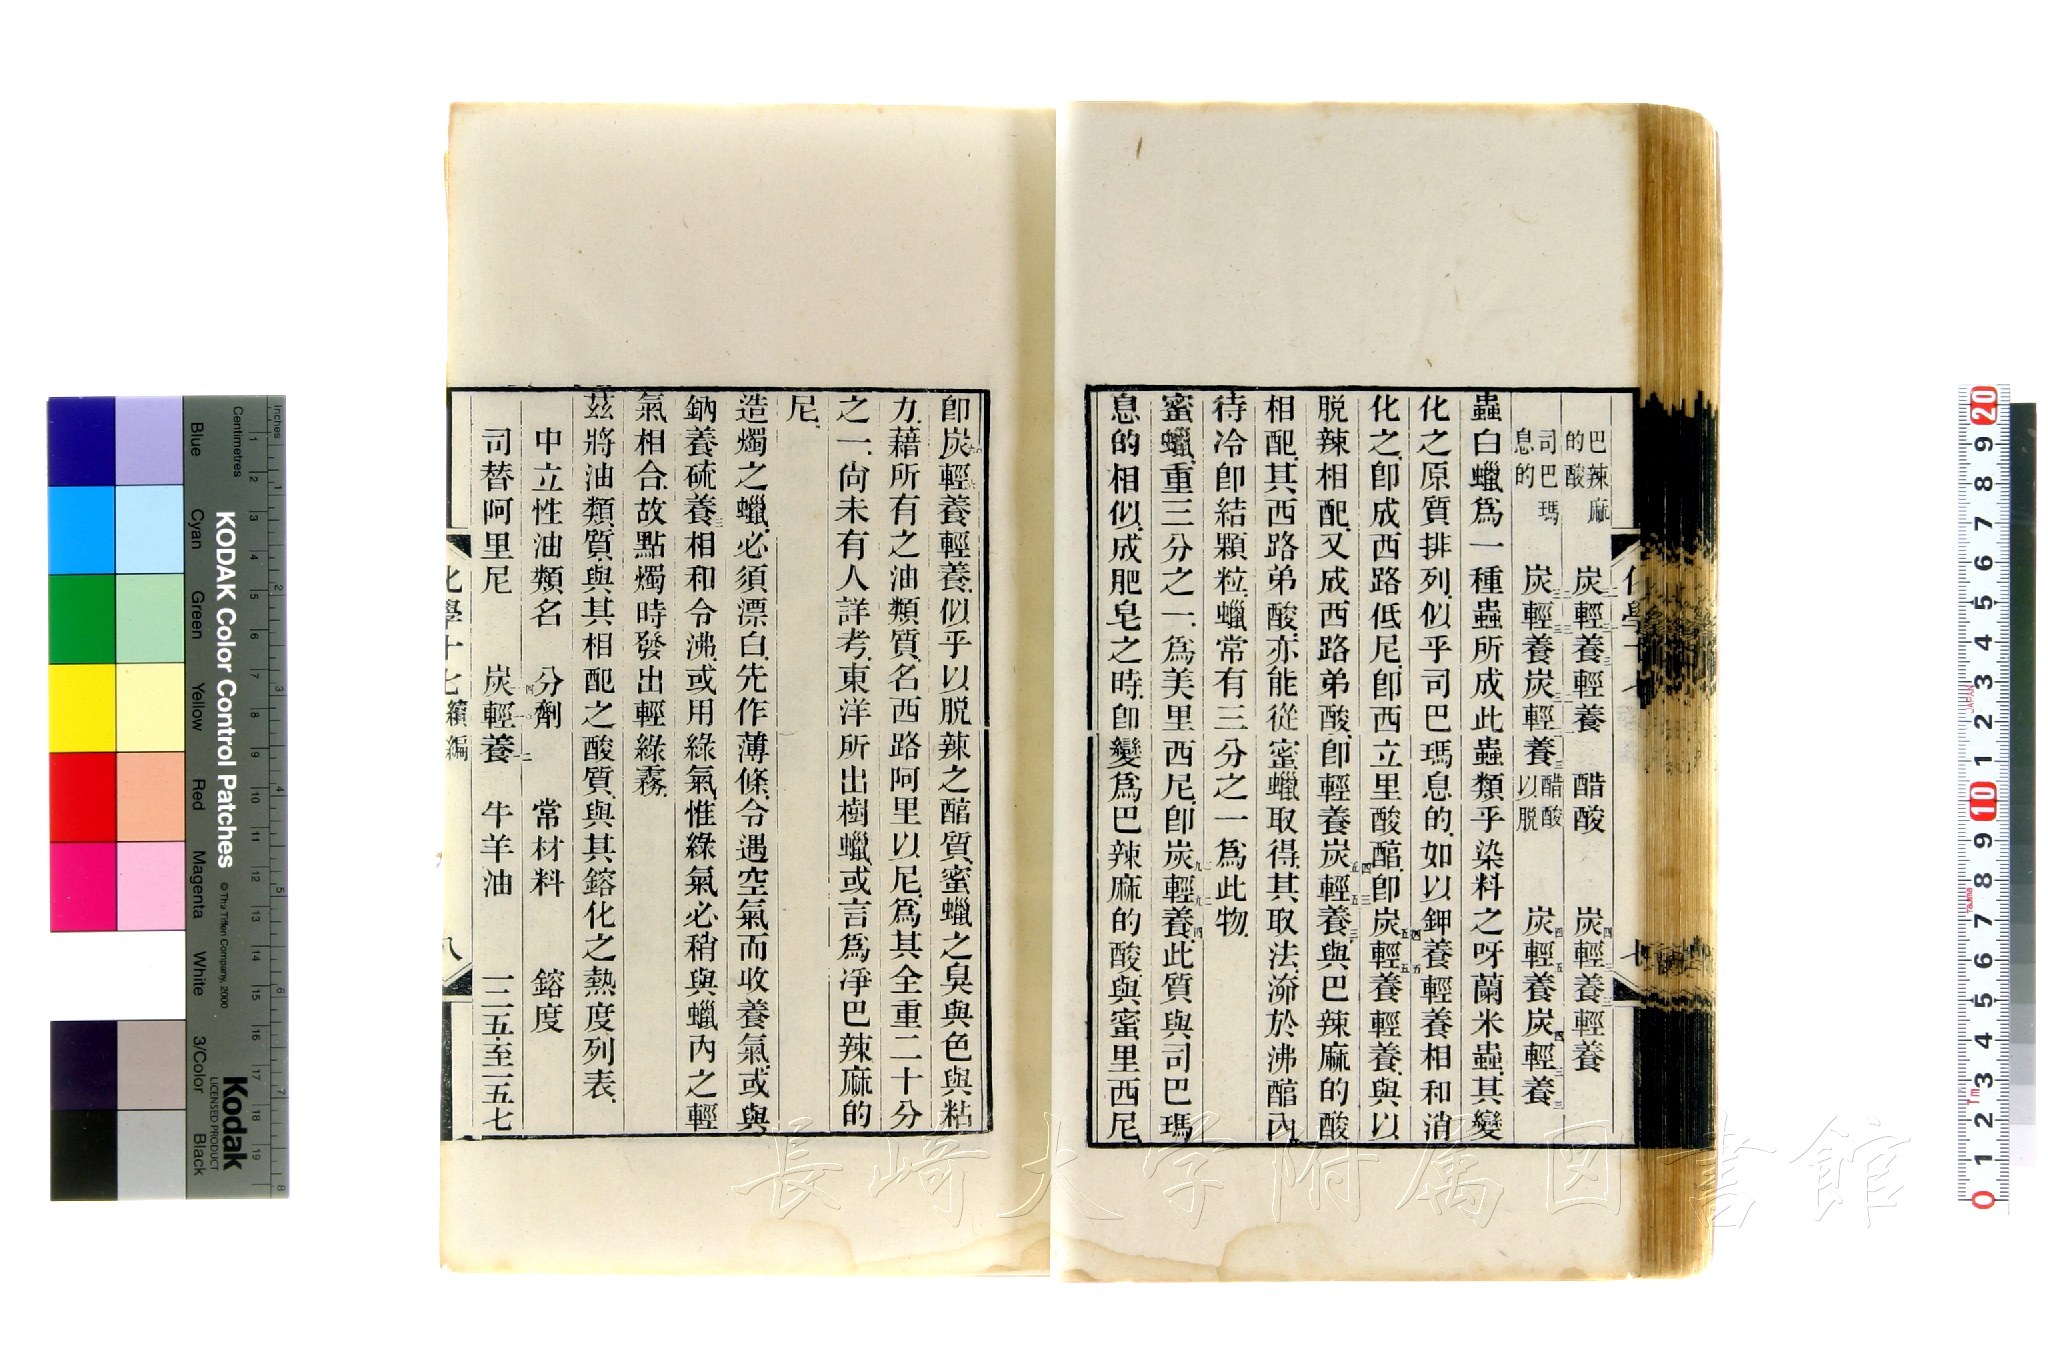 巴辣麻的酸　炭輕養輕養　醋酸　炭輕養輕養
司巴瑪息的　炭輕養炭輕養　醋酸以脫　炭輕養炭輕養
蟲白蠟爲一種蟲所成此蟲類乎染料之呀蘭米蟲其變
化之原質排列似乎司巴瑪息的如以鉀養輕養相和消
化之卽成西路低尼卽西立里酸醕卽炭輕養輕養與以
脫辣相配又成西路弟酸卽輕養炭輕養與巴辣麻的酸
相配其西路弟酸亦能從蜜蠟取得其取法添於沸醕內
待冷卽結顆粒蠟常有三分之一爲此物
蜜蠟重三分之一爲美里西尼卽炭輕養此質與司巴瑪
息的相似成肥皂之時卽變爲巴辣麻的酸與蜜里西尼
卽炭輕養輕養似乎以脫辣之醕質蜜蠟之臭與色與粘
力藉所有之油類質名西路阿里以尼爲其全重二十分
之一尙未有人詳考東洋所出樹蠟或言爲凈巴辣麻的
尼
造燭之蠟必須漂白先作薄條令遇空氣而收養氣或與
鈉養硫養相和令沸或用綠氣惟綠氣必稍與蠟內之輕
氣相合故點燭時發出輕綠霧
茲將油類質與其相配之酸質與其鎔化之熱度列表
中立性油類名　分劑　常材料　鎔度
司替阿里尼　炭輕養　牛羊油　一二五至一五七
化學十七續編
八
KODAK Color Control Patches
© The Tiffen Company, 2000
Kodak
LICENSED PRODUCT
Inches
Centimetres
Blue
Cyan
Green
Yellow
Red
Magenta
White
3/Color
Black
長崎大学附属図書館